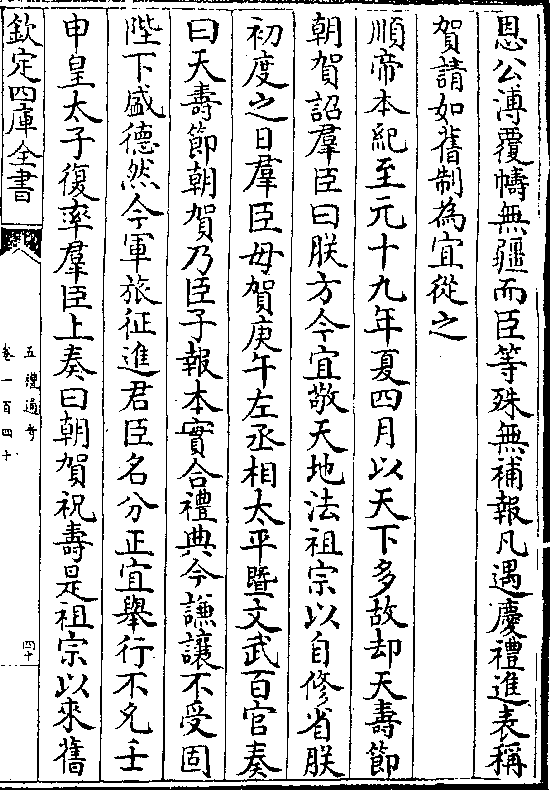 恩公溥覆幬無疆而臣等殊無補報凡遇慶禮進表稱
賀請如舊制為宜從之
順帝本紀至元十九年夏四月以天下多故却天壽節
朝賀詔羣臣曰朕方今宜敬天地法祖宗以自修省朕
初度之日羣臣毋賀庚午左丞相太平暨文武百官奏
曰天壽節朝賀乃臣子報本實合禮典今謙讓不受固
陛下盛德然今軍旅征進君臣名分正宜舉行不允壬
申皇太子復率羣臣上奏曰朝賀祝壽是祖宗以來舊
欽定四庫全書
五禮通考
卷一百四十
四十